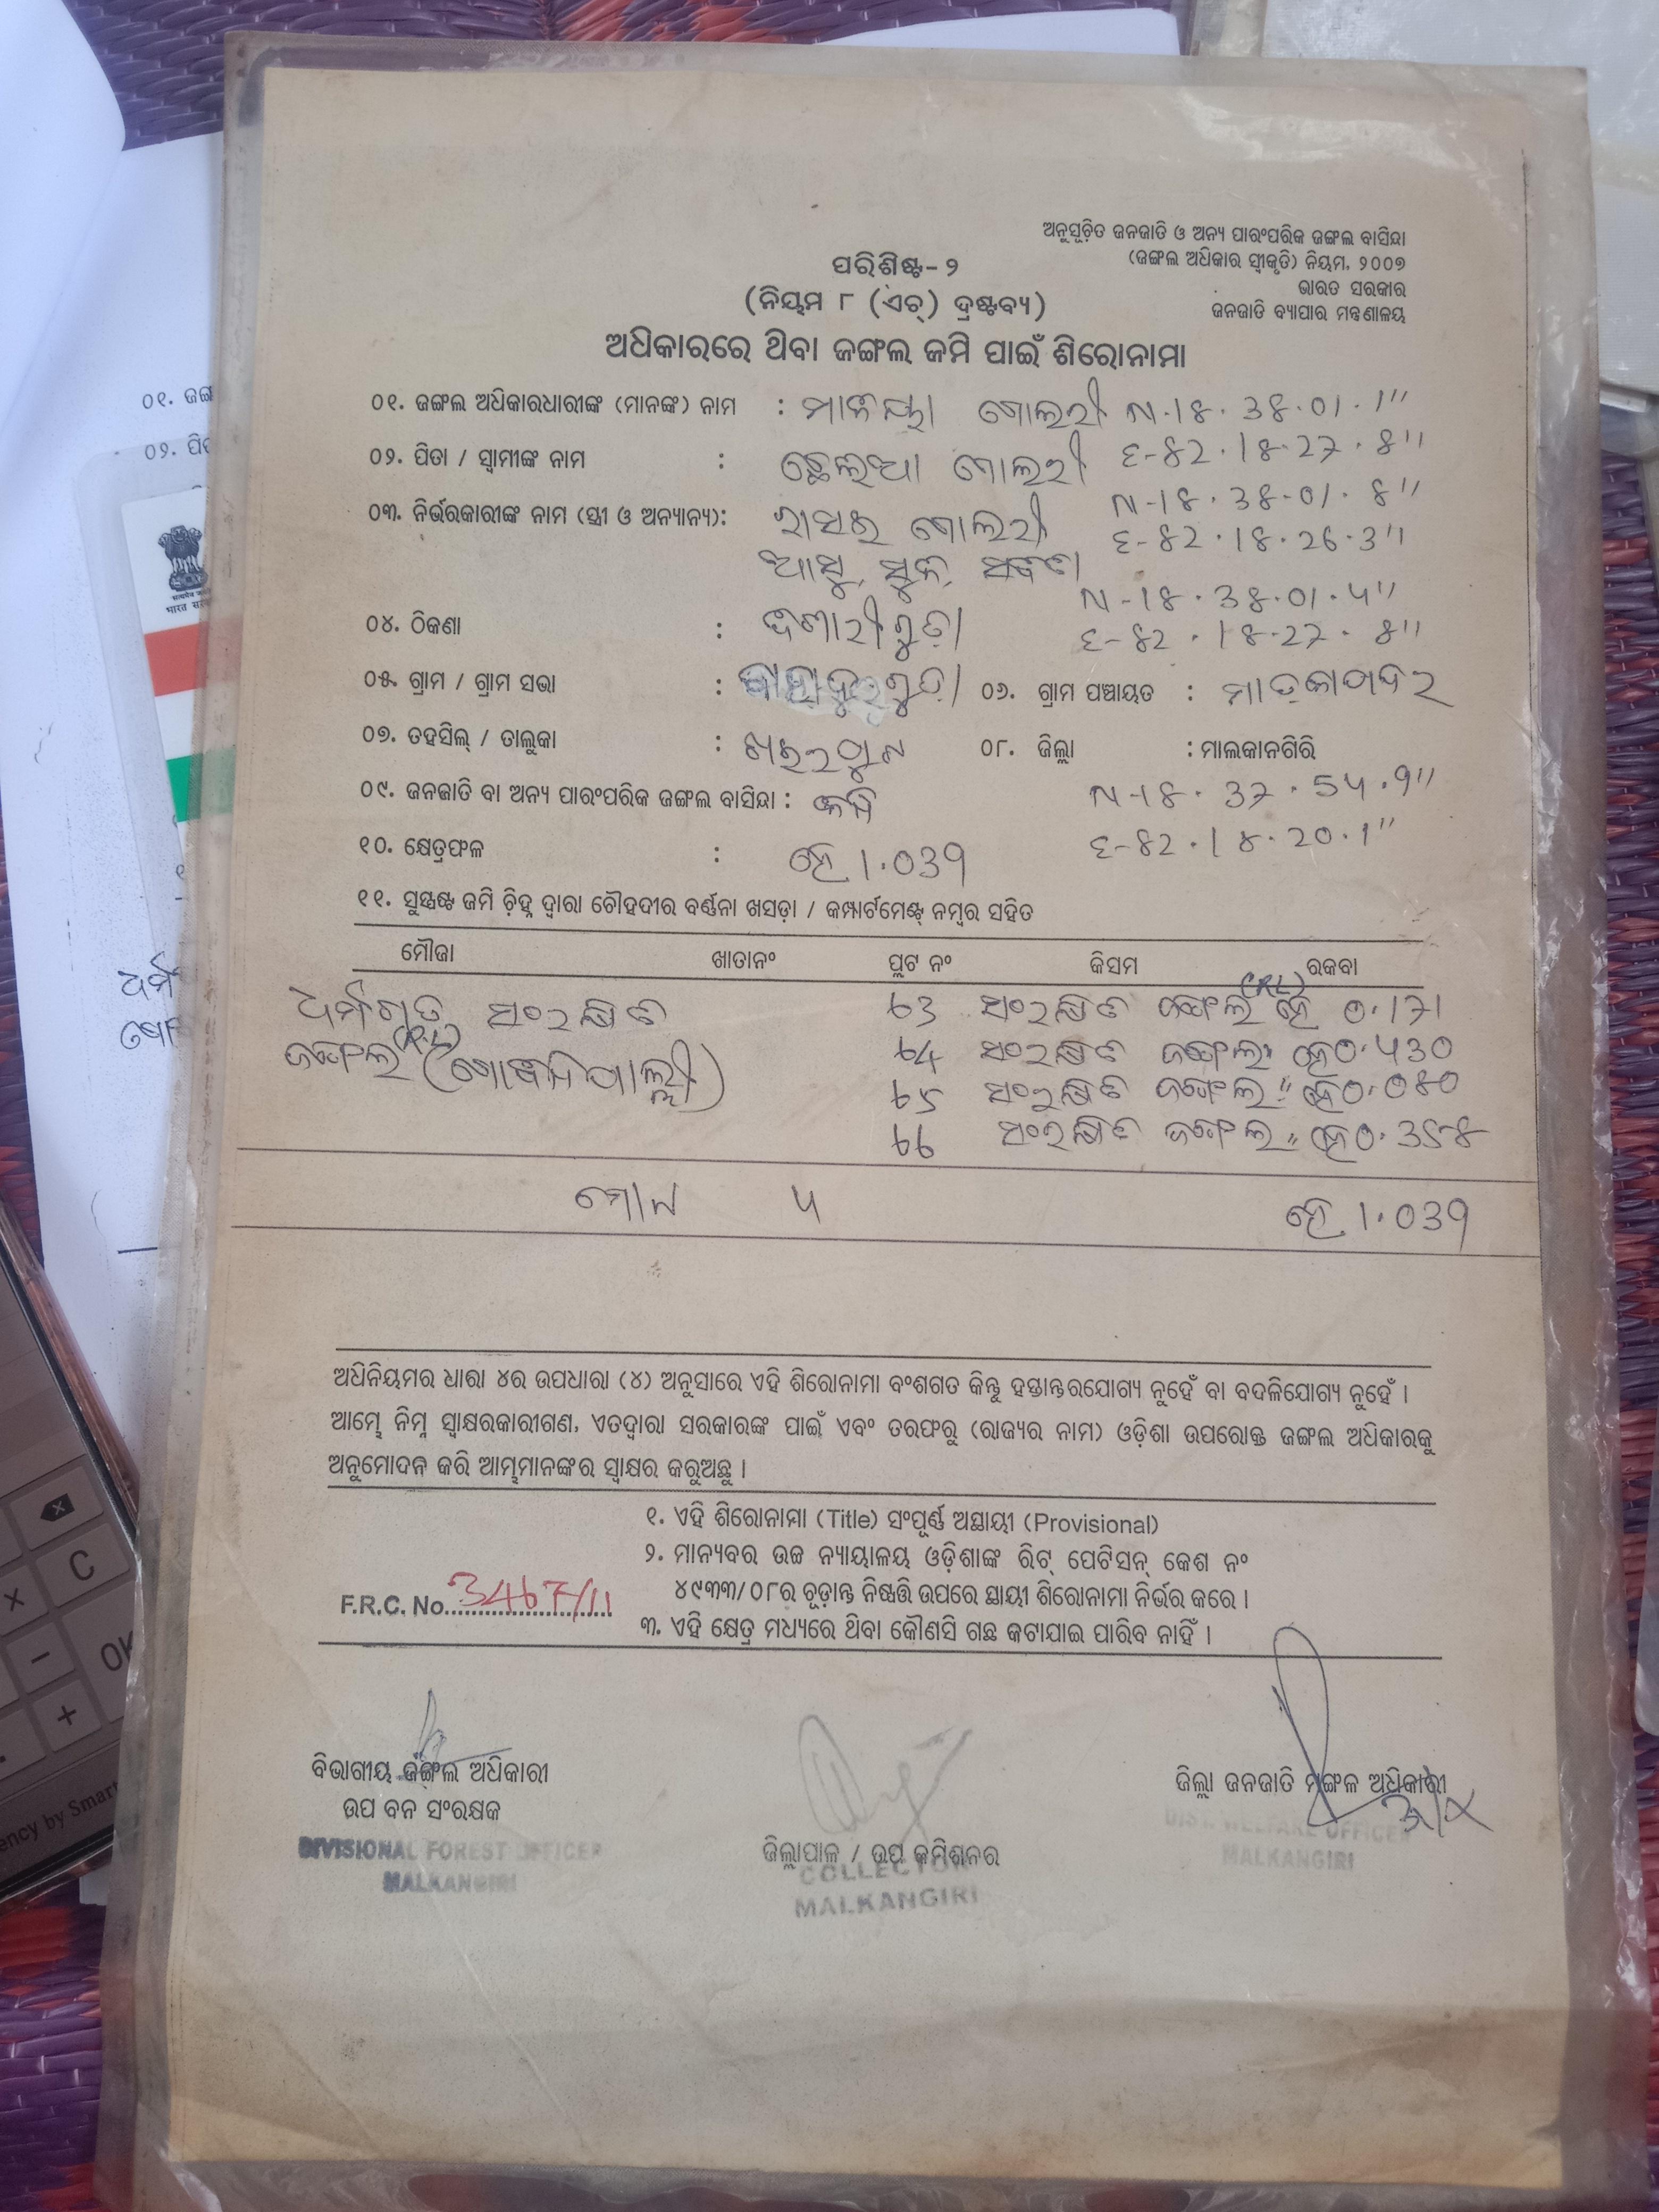 ଅନୁସୂଚିତ ଜନଜାତି ଓ ଅନ୍ୟ ପାରଂପରିକ ଜଙ୍ଗଲ ବାସିନ୍ଦା
(ଜଙ୍ଗଲ ଅଧିକାର ସ୍ୱୀକୃତି) ନିୟମ, ୨୦୦୭
ଭାରତ ସରକାର
ଜନଜାତି ବ୍ୟାପାର ମନ୍ତ୍ରଣାଳୟ
ପରିଶିଷ୍ଟ-୨
(ନିୟମ ୮ (ଏଚ୍) ଦ୍ରଷ୍ଟବ୍ୟ)
ଅଧିକାରରେ ଥିବା ଜଙ୍ଗଲ ଜମି ପାଇଁ ଶିରୋନାମା
୦୧. ଜଙ୍ଗଲ ଅଧିକାରଧାରୀଙ୍କ (ମାନଙ୍କ) ନାମ : ଗୋଲରୀ N-18.38.01.1"
୦୨. ପିତା / ସ୍ୱାମୀଙ୍କ ନାମ : ଗୋଲରୀ E-82.18.27.8"
N-18.38-01.8"
୦୩. ନିର୍ଭରକାରୀଙ୍କ ନାମ (ସ୍ତ୍ରୀ ଓ ଅନ୍ୟାନ୍ୟ): ଗୋଲରୀ E-82.18.26.3"
N-18.38.01.4"
୦୪. ଠିକଣା : E-82.18.27.8"
୦୫. ଗ୍ରାମ / ଗ୍ରାମ ସଭା : ୦୬. ଗ୍ରାମ ପଞ୍ଚାୟତ :
୦୭. ତହସିଲ୍ / ତାଲୁକା : ଖଇରପୁଟ ୦୮. ଜିଲ୍ଲା : ମାଲକାନଗିରି
୦୯. ଜନଜାତି ବା ଅନ୍ୟ ପାରଂପରିକ ଜଙ୍ଗଲ ବାସିନ୍ଦା : N-18.37.54.9"
୧୦. କ୍ଷେତ୍ରଫଳ : ହେ 1.039 E-82.18.20.1"
୧୧. ସୁସ୍ପଷ୍ଟ ଜମି ଚିହ୍ନ ଦ୍ୱାରା ଚୌହଦୀର ବର୍ଣ୍ଣନା ଖସଡ଼ା / କମ୍ପାର୍ଟମେଣ୍ଟ୍ ନମ୍ବର ସହିତ
ମୌଜା ଖାତାନଂ ପ୍ଲଟ ନଂ କିସମ ରକବା
ସଂରକ୍ଷିତ 63 ସଂରକ୍ଷିତ ଜଙ୍ଗଲ (RL) ହେ 0.171
ଜଙ୍ଗଲ (R.L) 64 ସଂରକ୍ଷିତ ଜଙ୍ଗଲ " ହେ 0.430
65 ସଂରକ୍ଷିତ ଜଙ୍ଗଲ " ହେ 0.080
66 ସଂରକ୍ଷିତ ଜଙ୍ଗଲ " ହେ 0.358
ମୋଟ 4 ହେ 1.039
ଅଧିନିୟମର ଧାରା ୪ର ଉପଧାରା (୪) ଅନୁସାରେ ଏହି ଶିରୋନାମା ବଂଶଗତ କିନ୍ତୁ ହସ୍ତାନ୍ତରଯୋଗ୍ୟ ନୁହେଁ ବା ବଦଳିଯୋଗ୍ୟ ନୁହେଁ ।
ଆମ୍ଭେ ନିମ୍ନ ସ୍ୱାକ୍ଷରକାରୀଗଣ, ଏତଦ୍ୱାରା ସରକାରଙ୍କ ପାଇଁ ଏବଂ ତରଫରୁ (ରାଜ୍ୟର ନାମ) ଓଡ଼ିଶା ଉପରୋକ୍ତ ଜଙ୍ଗଲ ଅଧିକାରକୁ
ଅନୁମୋଦନ କରି ଆମ୍ଭମାନଙ୍କର ସ୍ୱାକ୍ଷର କରୁଅଛୁ ।
୧. ଏହି ଶିରୋନାମା (Title) ସଂପୂର୍ଣ୍ଣ ଅସ୍ଥାୟୀ (Provisional)
୨. ମାନ୍ୟବର ଉଚ୍ଚ ନ୍ୟାୟାଳୟ ଓଡ଼ିଶାଙ୍କ ରିଟ୍ ପେଟିସନ୍ କେଶ ନଂ
୪୯୩୩/୦୮ର ଚୂଡ଼ାନ୍ତ ନିଷ୍ପତ୍ତି ଉପରେ ସ୍ଥାୟୀ ଶିରୋନାମା ନିର୍ଭର କରେ ।
F.R.C. No. 3467/11
୩. ଏହି କ୍ଷେତ୍ର ମଧ୍ୟରେ ଥିବା କୌଣସି ଗଛ କଟାଯାଇ ପାରିବ ନାହିଁ ।
ବିଭାଗୀୟ ଜଙ୍ଗଲ ଅଧିକାରୀ
ଉପ ବନ ସଂରକ୍ଷକ
DIVISIONAL FOREST OFFICER
MALKANGIRI
ଜିଲ୍ଲାପାଳ / ଉପ କମିଶନର
COLLECTOR
MALKANGIRI
ଜିଲ୍ଲା ଜନଜାତି ମଙ୍ଗଳ ଅଧିକାରୀ
DIST. WELFARE OFFICER
MALKANGIRI